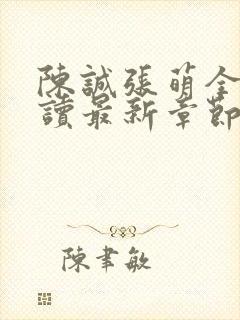 陳誠張萌全
讀最新章節
陳聿敏